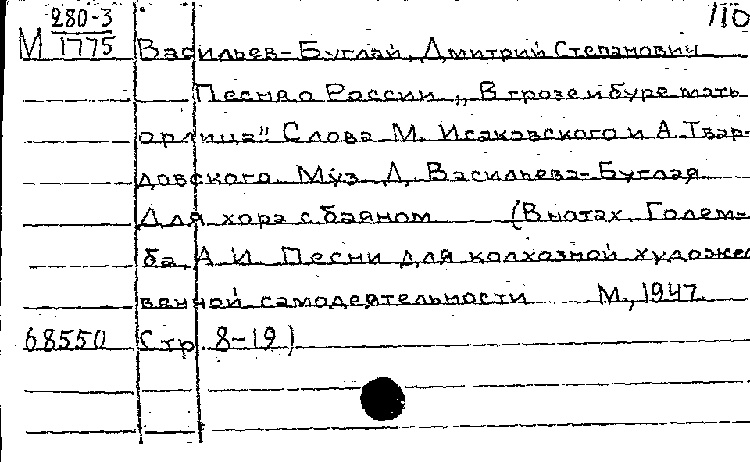 110
М 280-3
1775
Васильев-Буглай, Дмитрий Степанович
Песня о России „В грозе и буре мать
орлица" Слова М. Исаковского и А. Твар-
довского. Муз. Д. Васильева-Буглая
Для хора с баяном (В нотах. Голем-
ба, А. И. Песни для колхозной художе
венной самодеятельности М., 1947.
68550 Стр. 8-19)